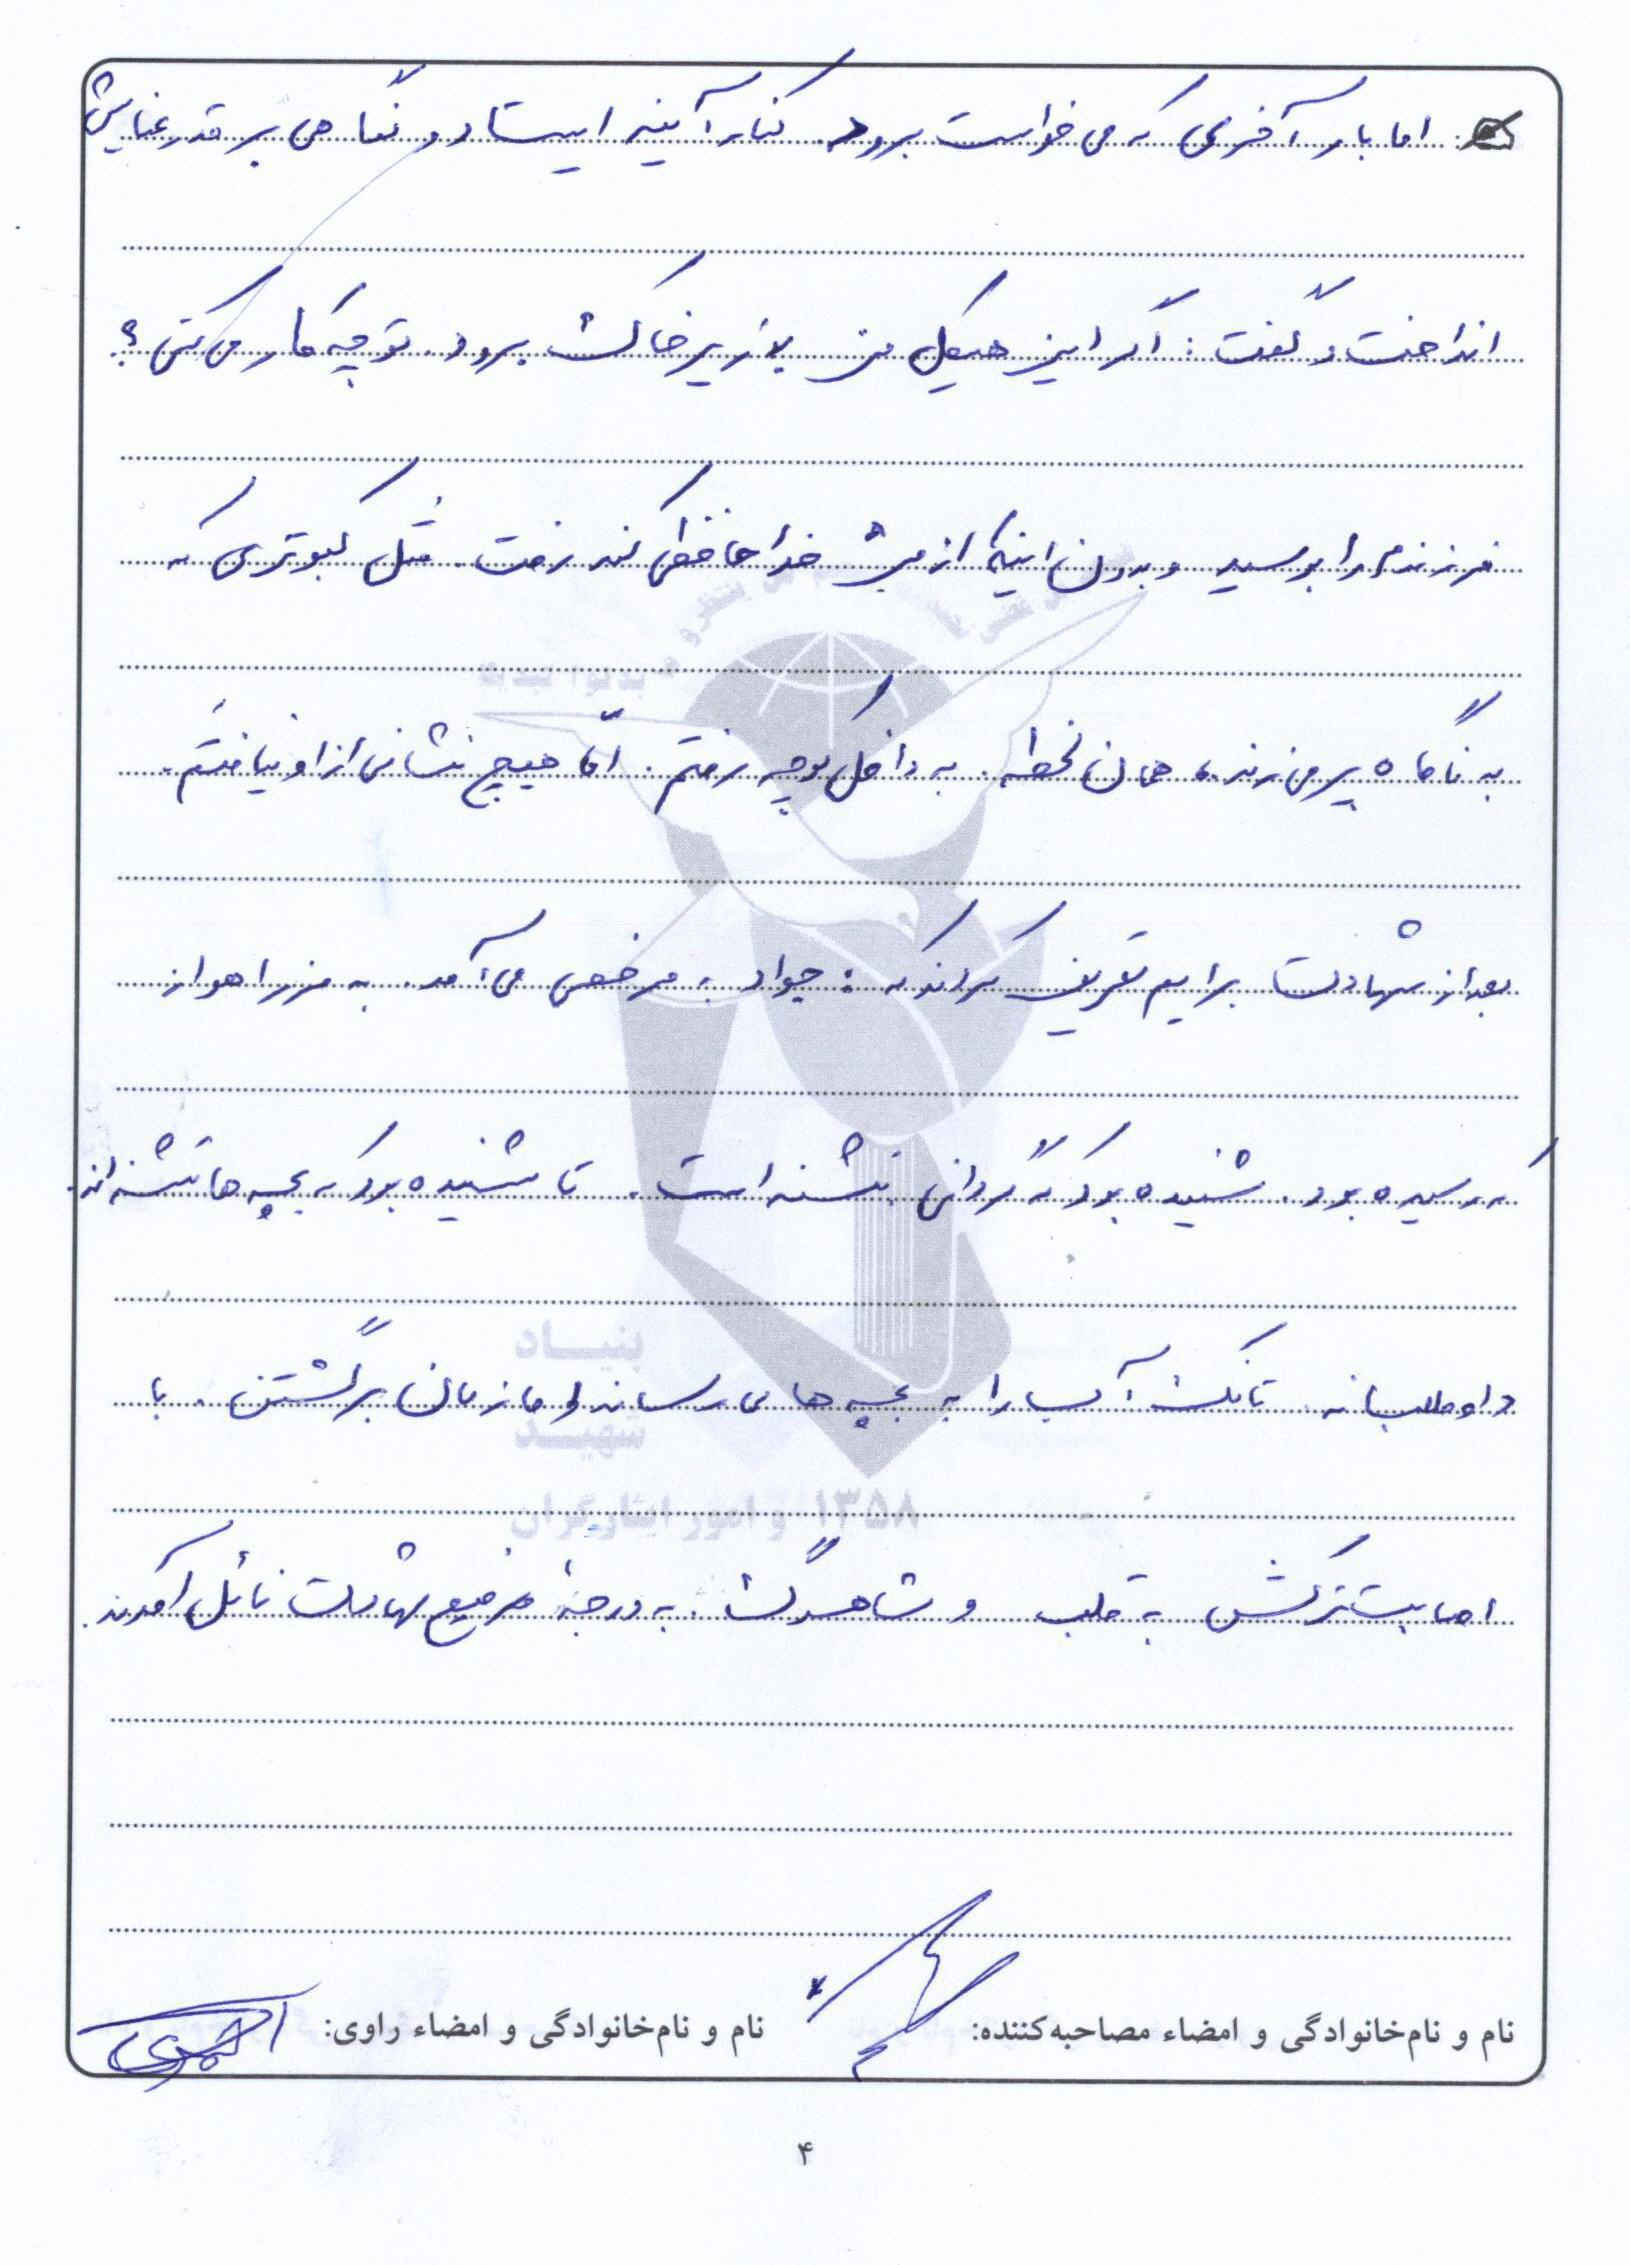 اما بار آخری که می خواست برود. کنار آینه ایستاد و نگاهی بر قد رعنایش
انداخت و گفت: اگر این هیکل من به زیر خاک برود. تو چه کار می کنی؟
فرزندم را بوسید و بدون اینکه از من خداحافظی کند رفت. مثل کبوتری که
به ناگاه پر می زند. همان لحظه. به داخل کوچه رفتم. امّا هیچ نشانی از او نیافتم.
بعد از شهادت برایم تعریف کردند که: جواد به مرخصی می آمد. به مرز اهواز
که رسیده بود. شنیده بود که گردانی تشنه است. تا شنیده بود که بچه ها تشنه اند.
داوطلبانه تانک آب را به بچه ها می رساند و اما زمان برگشتن. با
اصابت ترکش به قلب و شاهرگش. به درجهٔ رفیع شهادت نائل آمدند.
بنیاد
شهید
و امور ایثارگران ۱۳۵۸
نام و نام‌خانوادگی و امضاء مصاحبه‌کننده: نام و نام‌خانوادگی و امضاء راوی:
۴